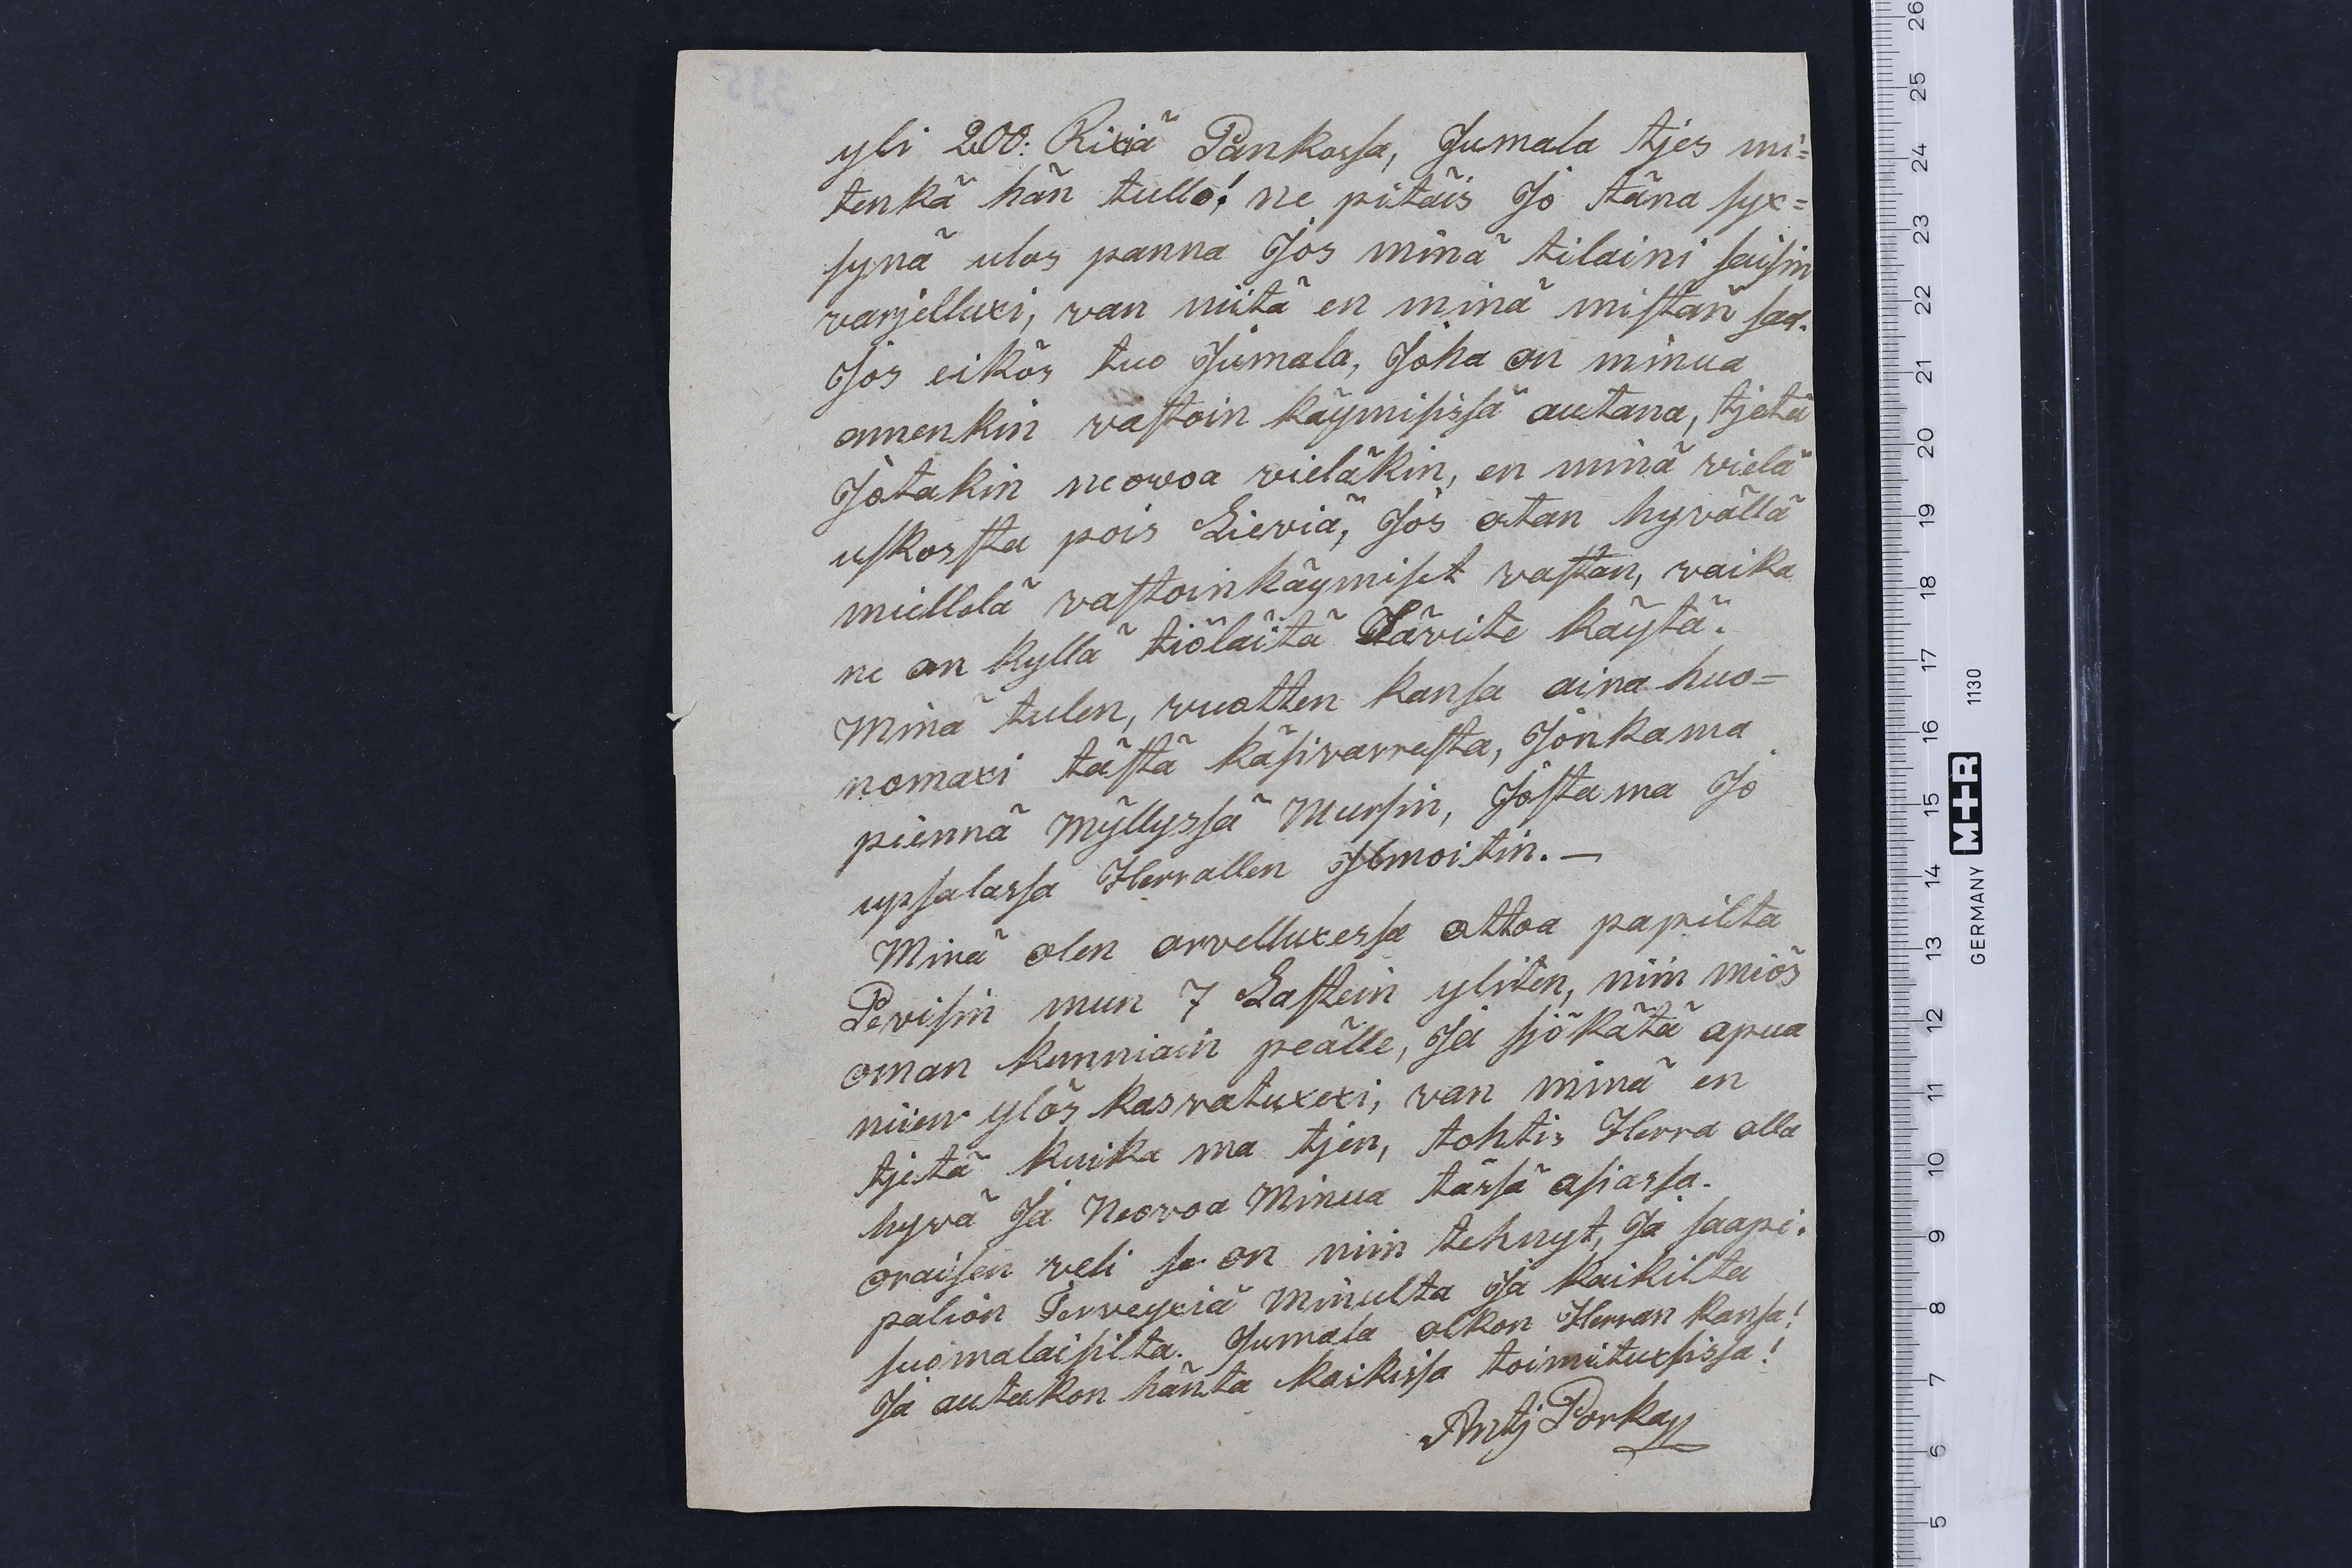 yli 200: Rixiä Pankossa, Jumala tjes mi=
tenkä hän tullo! ne pitäis Jo täna syx=
synä ulos panna Jos minä tilaini saisin
varjelluxi, van niitä en minä mistän saa.
Jos eikös tuo Jumala, Joka on minua
onnenkin vastoin käymisissä autana, tjetä
Jotakin neovoa vieläkin, en minä vielä
uskossta pois Lieviä, Jos otan hyvällä
miellolä vastoinkäymiset vastan, vaika
ne on kyllä tiöläitä Tärvite käytä.
Minä tulen, vuotten kansa aina huo=
nomaxi tästä käsivarresta, Jonka ma
piennä Myllyssä Mursin, Josta ma Jo
upsalassa Herrallen Jlmoitin. —
Minä olen arvelluxessa ottoa papilta
Pevisin mun 7 Lastein yliten, niin miös
oman kunniain peälle, Ja sjökätä apua
niien ylös kasvatuxexi, van minä en
tjetä kuika ma tjen, tohtis Herra olla
hyvä Ja Neovoa Minua tässä asiassa.
oraisen veli se on niin tehnyt, Ja saapi.
palion Terveyxiä Minulta Ja kaikilta
suomalaisilta. Jumala olkon Herran kansa!
Ja autakon häntä kaikissa toimituxsissa!
Antj Porka
335
GERMANY M+R 1130
26
25
24
23
22
21
20
19
18
17
16
15
14
13
12
11
10
9
8
7
6
5